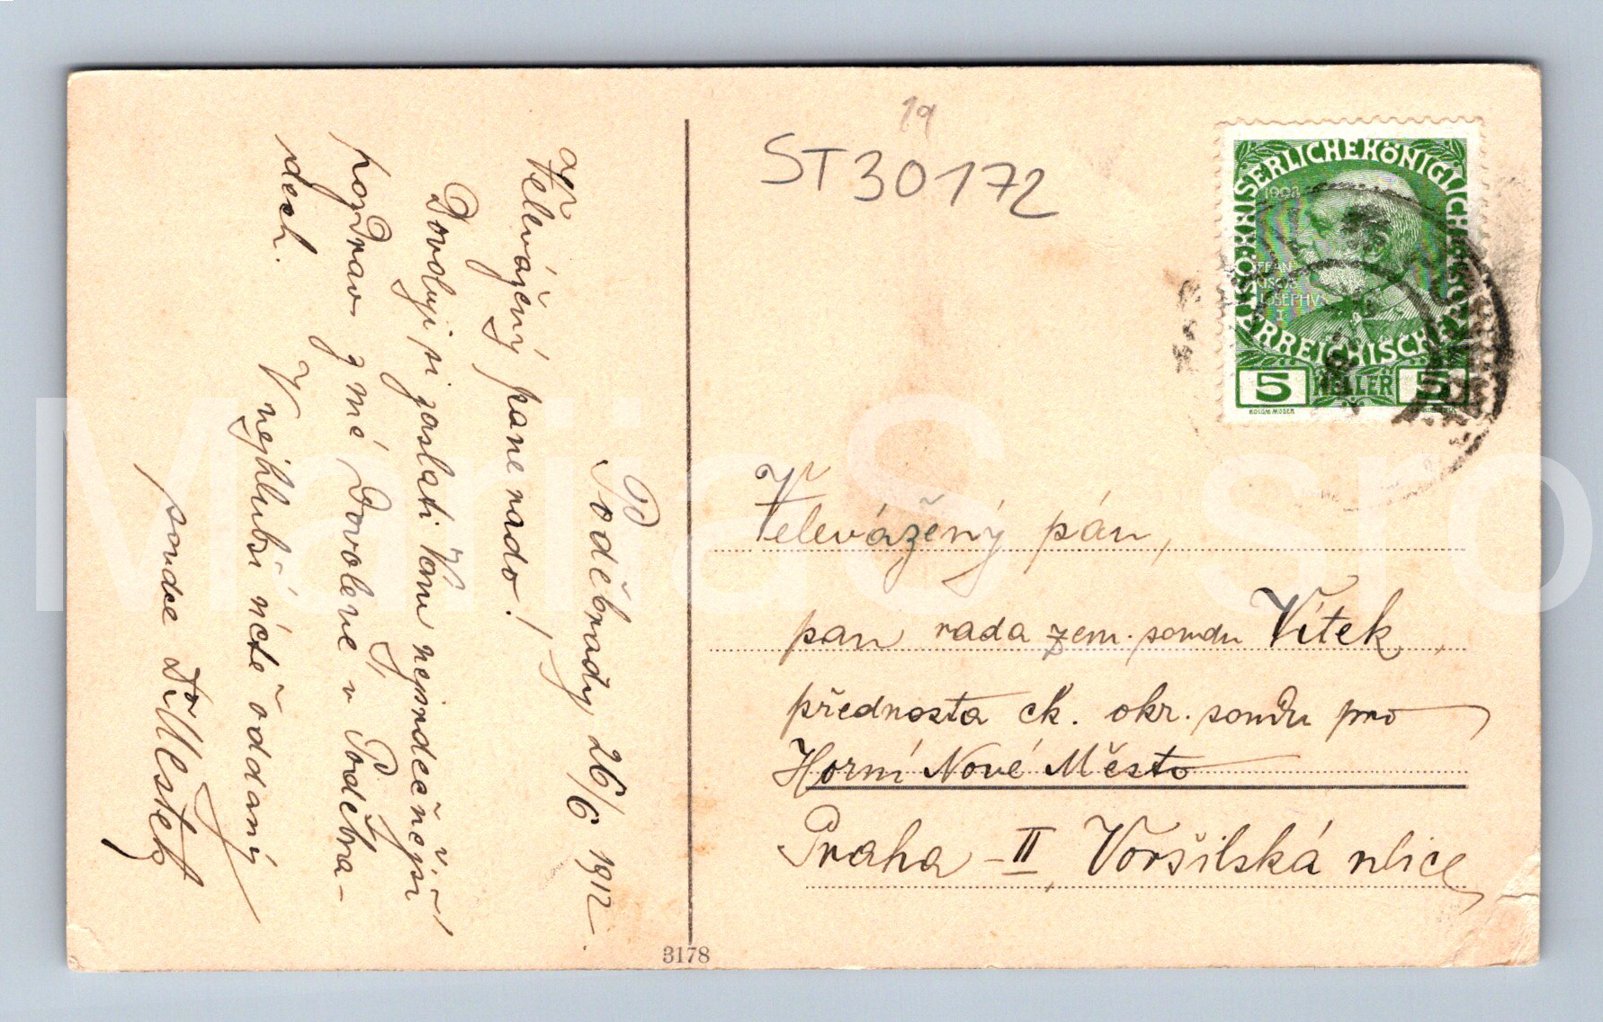 19
ST30172
KAISERLICHE KÖNIGLICHE
ÖSTERREICHISCHE
1908
FRAN
CISCVS
IOSEPHVS
I
5 HELLER 5
KOLOM. MOSER
Velevážený pán,
pan rada zem. soudu Vítek,
přednosta ck. okr. soudu pro
Horní Nové Město
Praha - II, Voršilská ulice
3178
Poděbrady 26/6 1912.
Velevážený pane rado!
Dovoluji si zaslati Vám nejsrdečnější
pozdrav z mé dovolené v Poděbra-
dech.
V nejhlubší úctě oddaný
soudce
MariiaS sro